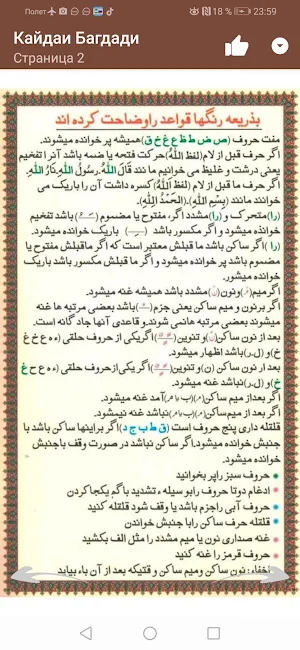 Полет
18 %
23:59
Кайдаи Багдади
Страница 2
بذریعه رنگها قواعد راوضاحت کرده اند
هفت حروف (ص ض ط ظ غ خ ق) همیشه پر خوانده میشوند.
اگر حرف قبل از لام (لفظ اللّٰه) حرکت فتحه یا ضمه باشد آنرا تفخیم
یعنی درشت و غلیظ می خوانیم ما نند قَالَ اللّٰهُ. رسُولُ اللّٰهِ. نَارُ اللّٰهِ.
اگر حرف ما قبل از لام (لفظ اللّٰه) کسره داشت آن را باریک می
خوانند مانند (بِسْمِ اللّٰهِ)، (الْحَمْدُ لِلّٰهِ).
(را) متحرک و (را) مشدد اگر، مفتوح یا مضموم باشد تفخیم
خوانده میشود و اگر مکسور باشد باریک خوانده میشود.
(را) اگر ساکن باشد ما قبلش معتبر است که اگر ماقبلش مفتوح یا
مضموم باشد پر خوانده میشود و اگر ما قبلش مکسور باشد باریک
خوانده میشود.
اگر میم و نون مشدد باشد همیشه غنه میشود.
اگر بر نون و میم ساکن یعنی جزم باشد بعضی مرتبه ها غنه
میشوند بعضی مرتبه هانمی شوند. و قاعدی آنها جدا گانه است.
بعد از نون ساکن (ن) و تنوین اگر یکی از حروف حلقی (ء ه ع ح غ
خ) و (ل.ر) باشد اظهار میشود.
بعد از نون ساکن (ن) و تنوین اگر یکی از حروف حلقی (ء ه ع ح غ
خ) و (ل.ر) نباشد غنه میشود.
اگر بعد از میم ساکن (م) (ب یا م) آمد غنه میشود.
اگر بعد از میم ساکن (م) (ب یا م) نباشد غنه نمیشود.
قلقله داری پنج حروف است (ق ط ب ج د) اگر براینها ساکن باشد با
جنبش خوانده میشود. اگر ساکن نباشد در صورت وقف باجنبش
خوانده میشود.
حروف سبز راپر بخوانید
ادغام دوتا حروف رابو سیله ء تشدید باگم یکجا کردن
حروف آبی راجزم باشد یا وقف شود قلقله کنید
قلقله حرف ساکن رابا جنبش خواندن
غنه صداری نون یا میم مشدد را مثل الف بکشید
حروف قرمز را غنه کنید
اخفاء: نون ساکن ومیم ساکن و قتیکه بعد از آن باء بیاید